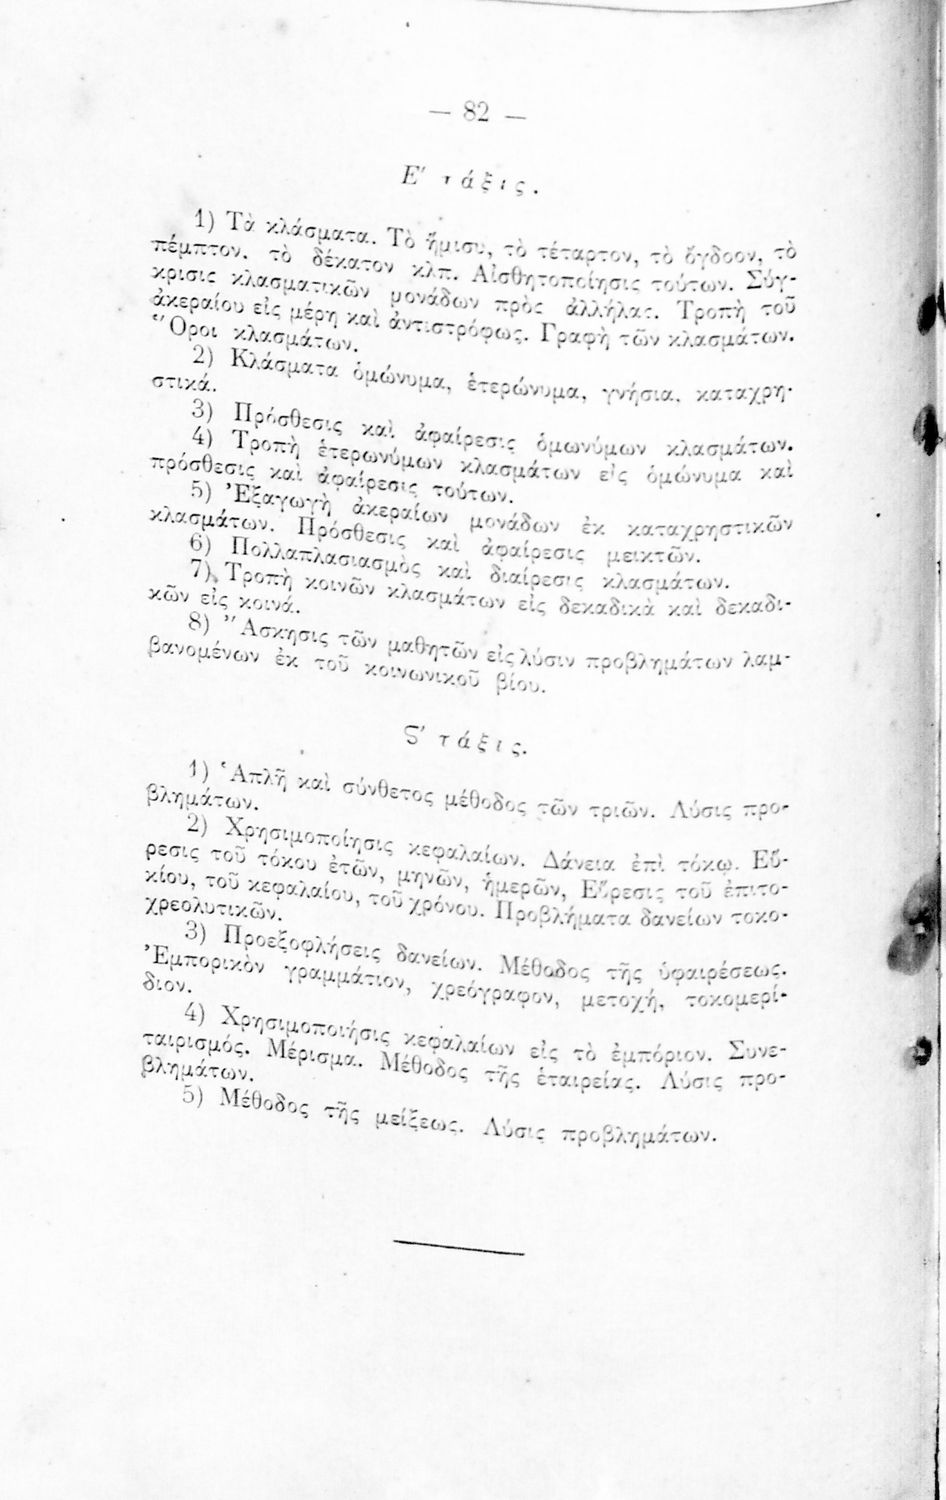 — 82 —
Ε' τάξις.
1) Τὰ κλάσματα. Τὸ ἥμισυ, τὸ τέταρτον, τὸ ὄγδοον, τὸ
πέμπτον, τὸ δέκατον κλπ. Αἰσθητοποίησις τούτων. Σύγ-
κρισις κλασματικῶν μονάδων πρὸς ἀλλήλας. Τροπὴ τοῦ
ἀκεραίου εἰς μέρη καὶ ἀντιστρόφως. Γραφὴ τῶν κλασμάτων.
Ὅροι κλασμάτων.
2) Κλάσματα ὁμώνυμα, ἑτερώνυμα, γνήσια, καταχρη-
στικά.
3) Πρόσθεσις καὶ ἀφαίρεσις ὁμωνύμων κλασμάτων.
4) Τροπὴ ἑτερωνύμων κλασμάτων εἰς ὁμώνυμα καὶ
πρόσθεσις καὶ ἀφαίρεσις τούτων.
5) Ἐξαγωγὴ ἀκεραίων μονάδων ἐκ καταχρηστικῶν
κλασμάτων. Πρόσθεσις καὶ ἀφαίρεσις μεικτῶν.
6) Πολλαπλασιασμὸς καὶ διαίρεσις κλασμάτων.
7) Τροπὴ κοινῶν κλασμάτων εἰς δεκαδικὰ καὶ δεκαδι-
κῶν εἰς κοινά.
8) Ἄσκησις τῶν μαθητῶν εἰς λύσιν προβλημάτων λαμ-
βανομένων ἐκ τοῦ κοινωνικοῦ βίου.
Ϛ' τάξις.
1) Ἁπλῆ καὶ σύνθετος μέθοδος τῶν τριῶν. Λύσις προ-
βλημάτων.
2) Χρησιμοποίησις κεφαλαίων. Δάνεια ἐπὶ τόκῳ. Εὕ-
ρεσις τοῦ τόκου ἐτῶν, μηνῶν, ἡμερῶν, Εὕρεσις τοῦ ἐπιτο-
κίου, τοῦ κεφαλαίου, τοῦ χρόνου. Προβλήματα δανείων τοκο-
χρεολυτικῶν.
3) Προεξοφλήσεις δανείων. Μέθοδος τῆς ὑφαιρέσεως.
Ἐμπορικὸν γραμμάτιον, χρεόγραφον, μετοχή, τοκομερί-
διον.
4) Χρησιμοποιήσις κεφαλαίων εἰς τὸ ἐμπόριον. Συνε-
ταιρισμός. Μέρισμα. Μέθοδος τῆς ἑταιρείας. Λύσις προ-
βλημάτων.
5) Μέθοδος τῆς μείξεως. Λύσις προβλημάτων.